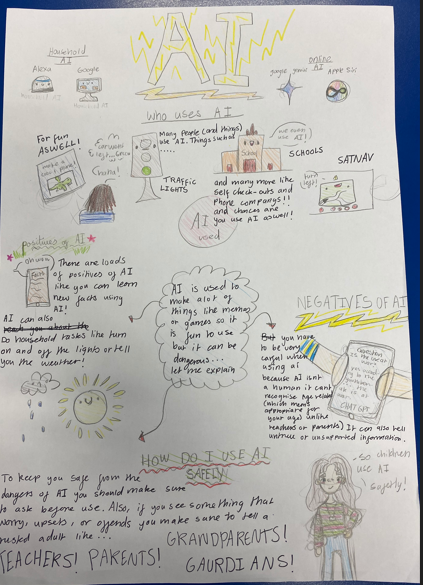 AI
Household
AI
Alexa
Google
online
AI
google gemini
Apple Siri
Who uses AI
For fun
ASWELL!
make a
Chacha!
Many People (and things)
use AI. Things such as
.....
TRAFFIC
LIGHTS
School
we even
use AI!
SCHOOLS
SATNAV
turn
left!
and many more like
self check-outs and
Phone companys!!
and chances are
You use AI aswell!
AI
used
Positives of AI
Fact
There are loads
of positives of AI
like you can learn
new facts using
AI!
AI can also
read you about the
Do household tasks like turn
on and off the lights or tell
you the weather!
AI is used to
make alot of
things like memes
or games so it
is fun to use
but it can be
dangerous...
let me explain
NEGATIVES OF AI
But you have
to be very
careful when
using ai
because AI isnt
a human it cant
recognise Age related
(which means
appropriate for
your age) unlike
teachers or parents) It can also tell
untrue or unsapported information.
Question
CHATGPT
HOW DO I USE AI
SAFELY
To keep you safe from the
dangers of AI you should make sure
to ask before use. Also, if you see something that
worry, upsets, or ofends you make sure to tell a
rusted adult like...
GRANDPARENTS!
TEACHERS! PARENTS!
GAURDIANS!
-so children
use AI
safely!